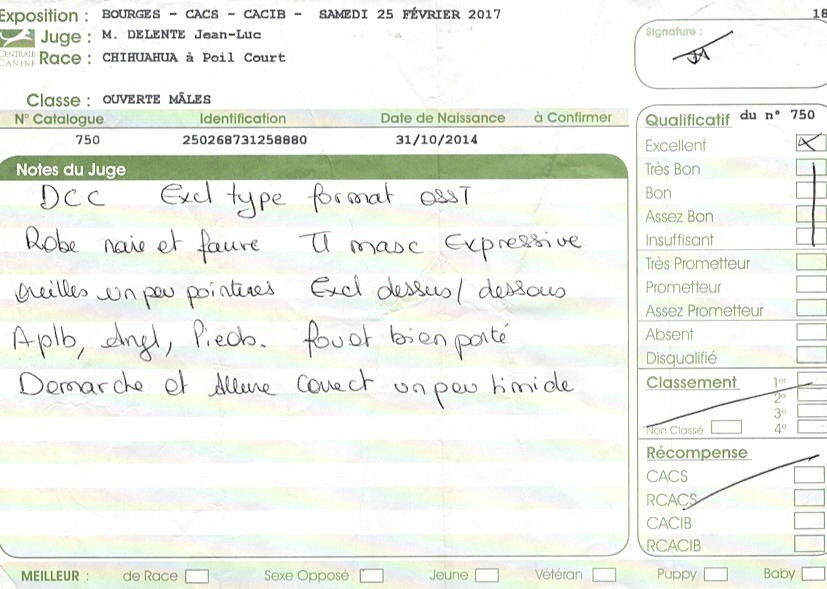 Exposition : BOURGES - CACS - CACIB - SAMEDI 25 FÉVRIER 2017
18
Juge : M. DELENTE Jean-Luc
CENTRALE CANINE
Race : CHIHUAHUA à Poil Court
Signature :
Classe : OUVERTE MÂLES
N° Catalogue Identification Date de Naissance à Confirmer
750 250268731258880 31/10/2014
Notes du Juge
DCC Excl type format osst
Robe noire et fauve Tt masc Expressive
Oreilles un peu pointues Excl dessus/ dessous
Aplb, Angl, Pieds. fouet bien porté
Démarche et Allure correct un peu timide
Qualificatif du n° 750
Excellent
Très Bon
Bon
Assez Bon
Insuffisant
Très Prometteur
Prometteur
Assez Prometteur
Absent
Disqualifié
Classement
1er
2e
3e
Non Classé 4e
Récompense
CACS
RCACS
CACIB
RCACIB
MEILLEUR : de Race Sexe Opposé Jeune Vétéran Puppy Baby